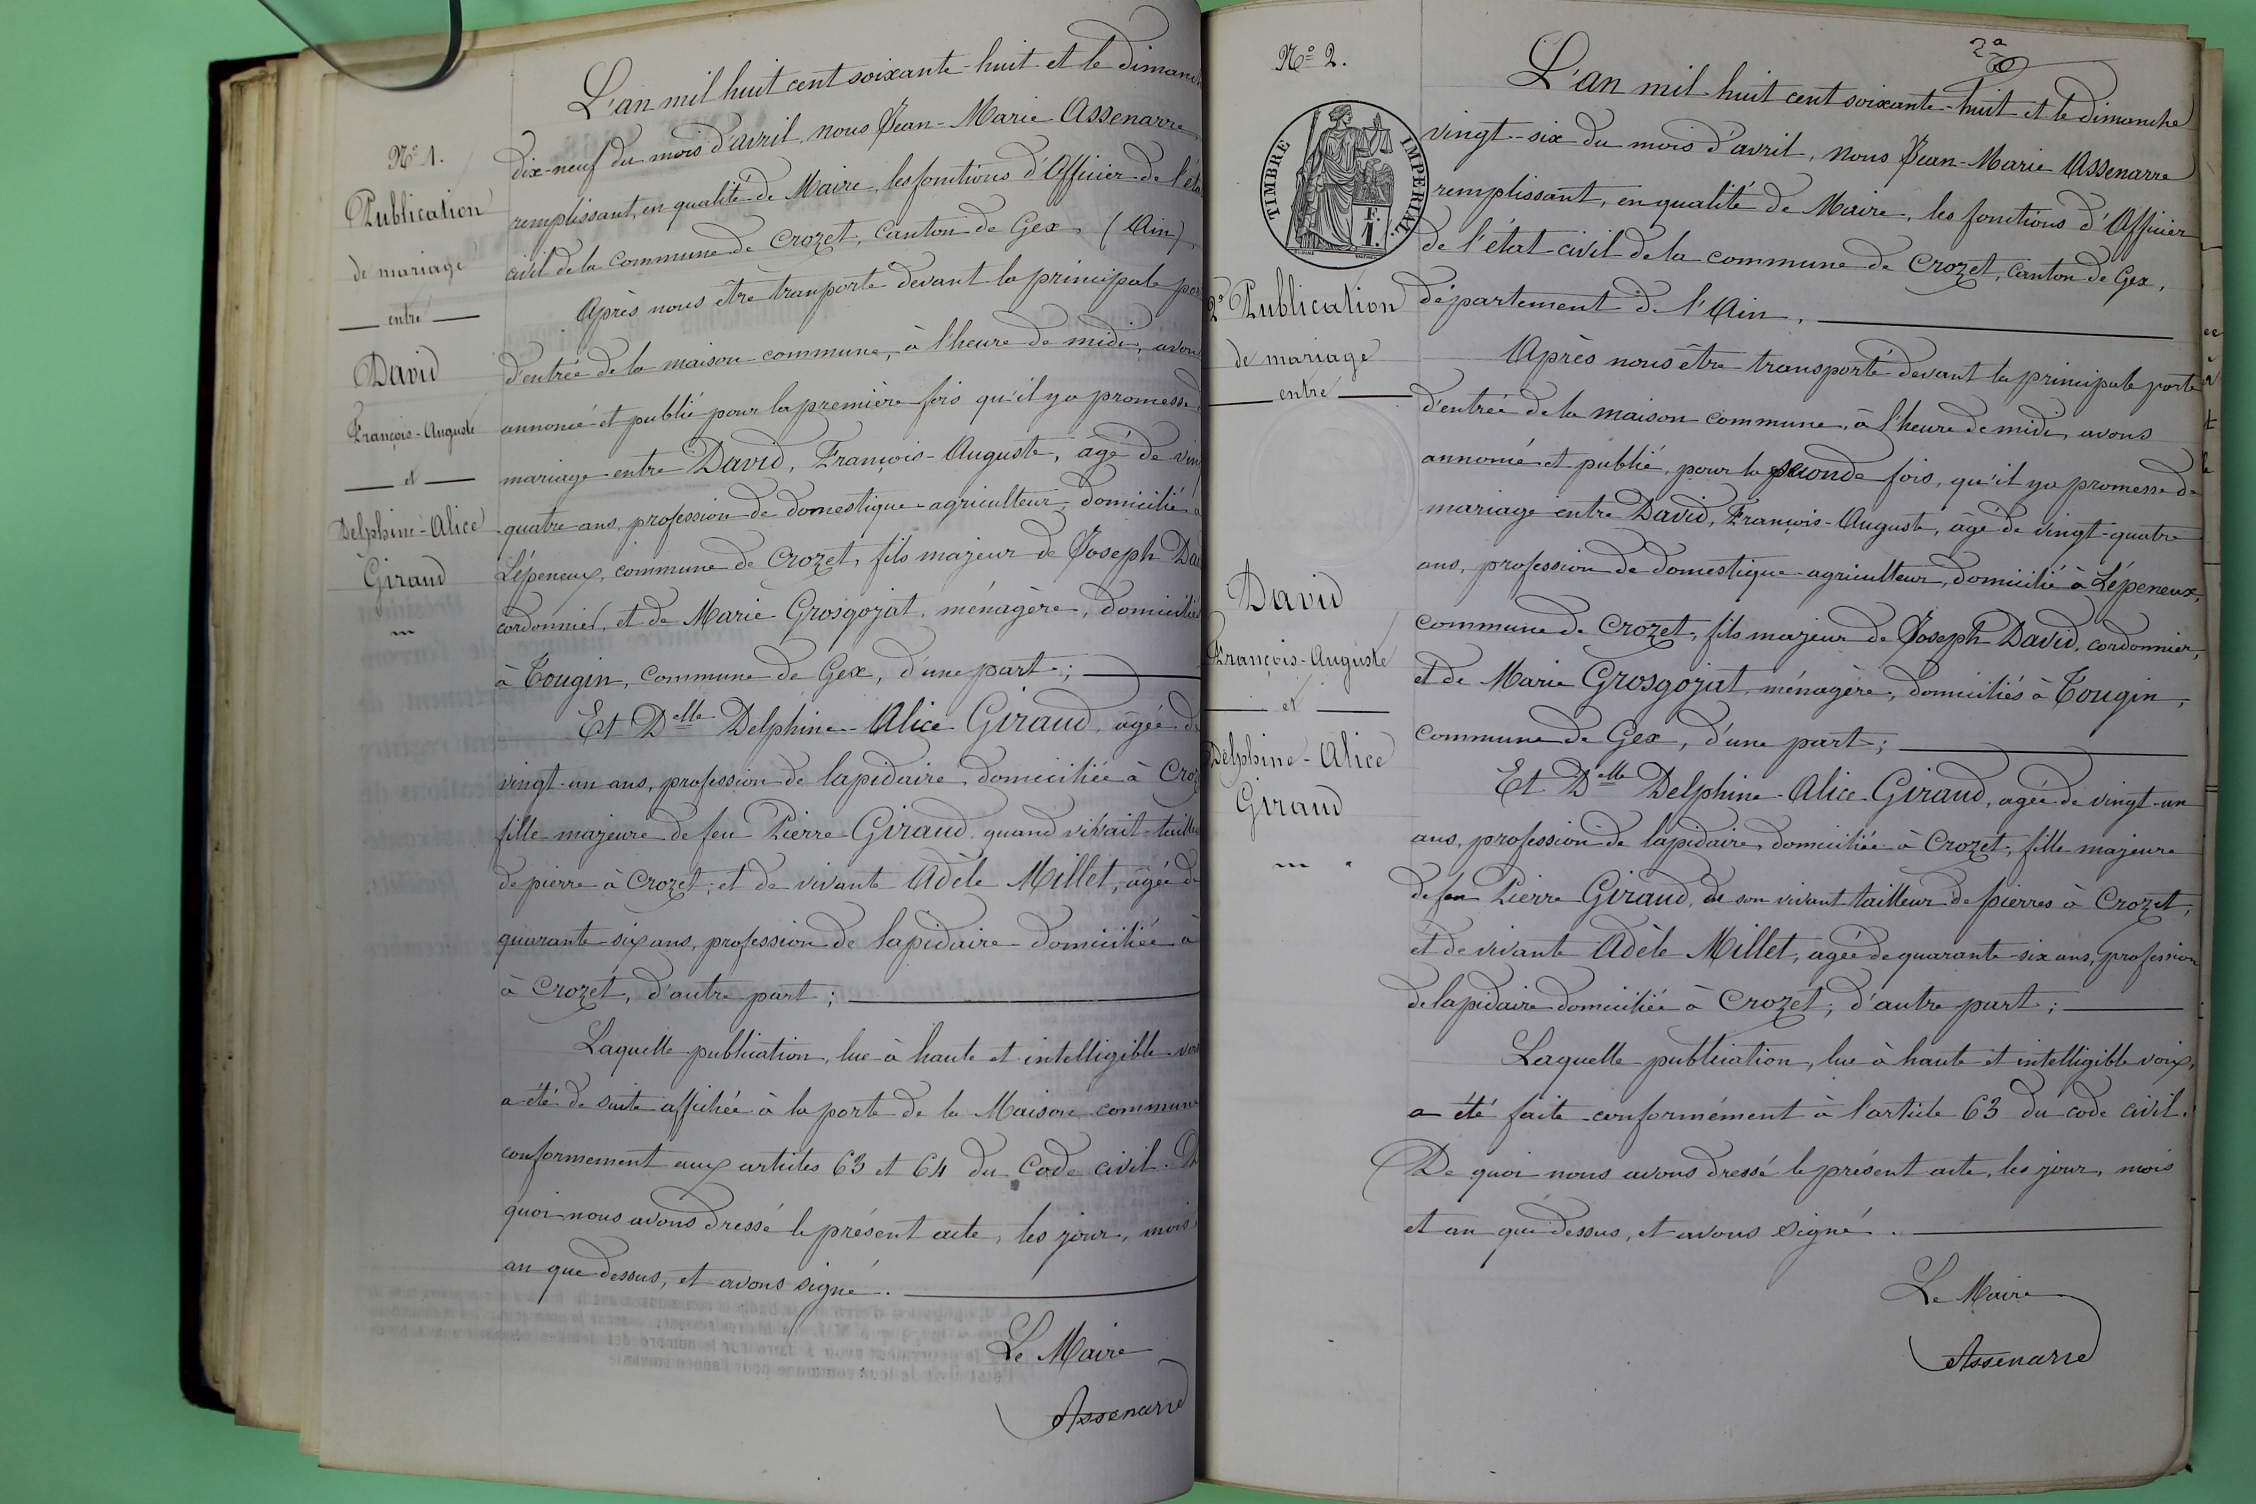 N° 1.
Publication
de mariage
entre
David
François-Auguste
et
Delphine-Alice
Giraud
L'an mil huit cent soixante-huit et le dimanc
dix-neuf du mois d'avril, nous Jean-Marie Assenarre
remplissant, en qualité de Maire, les fonctions d'Officier de l'éta
civil de la commune de Crozet, Canton de Gex, (Ain),
Après nous être tranporté devant la principale por
d'entrée de la maison commune, à l'heure de midi, avons
annoncé et publié pour la première fois qu'il y a promesse
mariage entre David, François-Auguste, âgé de vin
quatre ans, profession de domestique-agriculteur, domicilié à
Lépeneux, commune de Crozet, fils majeur de Joseph Da
cordonnier, et de Marie Grosgojat, ménagère, domiciliés
à Tougin, commune de Gex, d'une part;
Et Delle Delphine-Alice Giraud, agée de
vingt-un ans, profession de lapidaire, domiciliée à Croz
fille majeure de feu Pierre Giraud, quand vivait taille
de pierre à Crozet; et de vivante Adèle Millet, agée de
quarante-six ans, profession de lapidaire domiciliée à
à Crozet, d'autre part;
Laquelle publication, lue à haute et intelligible voi
a été de suite affichée à la porte de la Maison commune
conformement aux articles 63 et 64 du Code civil. De
quoi nous avons dressé le présent acte, les jour, mois
an que dessus, et avons signé.
Le Maire
Assenarre
N° 2.
TIMBRE IMPÉRIAL
F.
1.
2e Publication
de mariage
entre
David
François-Auguste
et
Delphine-Alice
Giraud
2a
L'an mil huit cent soixante-huit et le dimanche
vingt-six du mois d'avril, nous Jean-Marie Assenarre
remplissant, en qualité de Maire, les fonctions d'Officier
de l'état civil de la commune de Crozet, Canton de Gex,
département de l'Ain,
Après nous être transporté devant la principale porte
d'entrée de la maison commune, à l'heure de midi, avons
annoncé et publié, pour la seconde fois, qu'il y a promesse de
mariage entre David, François-Auguste, âgé de vingt-quatre
ans, profession de domestique-agriculteur, domicilié à Lépeneux,
commune de Crozet, fils majeur de Joseph David, cordonnier,
et de Marie Grosgojat, ménagère, domiciliés à Tougin,
commune de Gex, d'une part;
Et Delle Delphine-Alice Giraud, agée de vingt-un
ans, profession de lapidaire, domiciliée à Crozet, fille majeure
de feu Pierre Giraud, de son vivant tailleur de pierres à Crozet,
et de vivante Adèle Millet, agée de quarante-six ans, profession
de lapidaire domiciliée à Crozet, d'autre part;
Laquelle publication, lue à haute et intelligible voix,
a été faite conformément à l'article 63 du code civil.
De quoi nous avons dressé le présent acte, les jour, mois
et an que dessus, et avons signé.
Le Maire
Assenarre